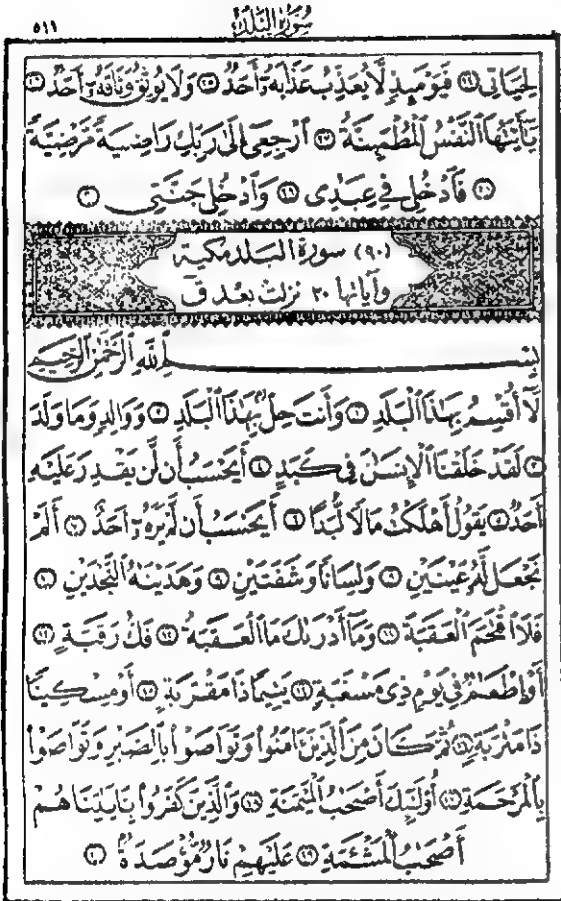 سورة البلد
٥١١
لِحَيَاتِى ٢٤ فَيَوْمَئِذٍ لَّا يُعَذِّبُ عَذَابَهُۥٓ أَحَدٌ ٢٥ وَلَا يُوثِقُ وَثَاقَهُۥٓ أَحَدٌ ٢٦
يَٰٓأَيَّتُهَا ٱلنَّفْسُ ٱلْمُطْمَئِنَّةُ ٢٧ ٱرْجِعِىٓ إِلَىٰ رَبِّكِ رَاضِيَةً مَّرْضِيَّةً
٢٨ فَٱدْخُلِى فِى عِبَٰدِى ٢٩ وَٱدْخُلِى جَنَّتِى ٣٠
(٩٠) سورة البلد مكية
وآياتها ٢٠ نزلت بعد ق
بِسْمِ ٱللَّهِ ٱلرَّحْمَٰنِ ٱلرَّحِيمِ
لَآ أُقْسِمُ بِهَٰذَا ٱلْبَلَدِ ١ وَأَنتَ حِلٌّۢ بِهَٰذَا ٱلْبَلَدِ ٢ وَوَالِدٍ وَمَا وَلَدَ
٣ لَقَدْ خَلَقْنَا ٱلْإِنسَٰنَ فِى كَبَدٍ ٤ أَيَحْسَبُ أَن لَّن يَقْدِرَ عَلَيْهِ
أَحَدٌ ٥ يَقُولُ أَهْلَكْتُ مَالًا لُّبَدًا ٦ أَيَحْسَبُ أَن لَّمْ يَرَهُۥٓ أَحَدٌ ٧ أَلَمْ
نَجْعَل لَّهُۥ عَيْنَيْنِ ٨ وَلِسَانًا وَشَفَتَيْنِ ٩ وَهَدَيْنَٰهُ ٱلنَّجْدَيْنِ ١٠
فَلَا ٱقْتَحَمَ ٱلْعَقَبَةَ ١١ وَمَآ أَدْرَىٰكَ مَا ٱلْعَقَبَةُ ١٢ فَكُّ رَقَبَةٍ ١٣
أَوْ إِطْعَٰمٌ فِى يَوْمٍ ذِى مَسْغَبَةٍ ١٤ يَتِيمًا ذَا مَقْرَبَةٍ ١٥ أَوْ مِسْكِينًا
ذَا مَتْرَبَةٍ ١٦ ثُمَّ كَانَ مِنَ ٱلَّذِينَ ءَامَنُوا۟ وَتَوَاصَوْا۟ بِٱلصَّبْرِ وَتَوَاصَوْا۟
بِٱلْمَرْحَمَةِ ١٧ أُو۟لَٰٓئِكَ أَصْحَٰبُ ٱلْمَيْمَنَةِ ١٨ وَٱلَّذِينَ كَفَرُوا۟ بِـَٔايَٰتِنَا هُمْ
أَصْحَٰبُ ٱلْمَشْـَٔمَةِ ١٩ عَلَيْهِمْ نَارٌ مُّؤْصَدَةٌۢ ٢٠